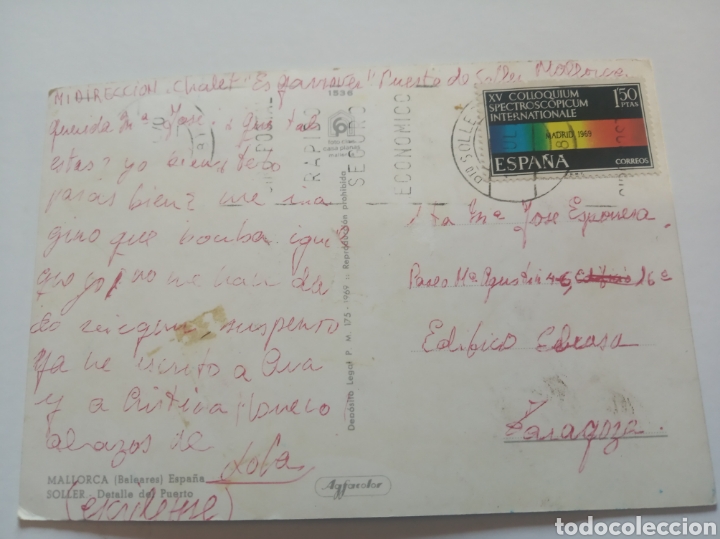 MI DIRECCION chalet "Es " Puerto de Soller Mallorca
querida Mª Jose: ¿que tal
estas? yo bien ¿te lo
pasas bien? me ima
gino que bomba igual
que yo ¡no me han da
do ningun suspenso
ya he escrito a Ana
y a Cristina
abrazos de
Lola
(escribeme)
MALLORCA (Baleares) España
SOLLER - Detalle del Puerto
1938
Reproducción prohibida
Depósito Legal P. M. 175 - 1969
RAPIDO
SEGURO
ECONOMICO
SOLLER
XV COLLOQUIUM
SPECTROSCOPICUM
INTERNATIONALE
1'50
PTAS
MADRID 1969
ESPAÑA
CORREOS
Mª Jose Esponera
Paseo Mª Agustin 4-6, 16º
Edifico Ebrosa
Zaragoza.
Agfacolor
todocoleccion